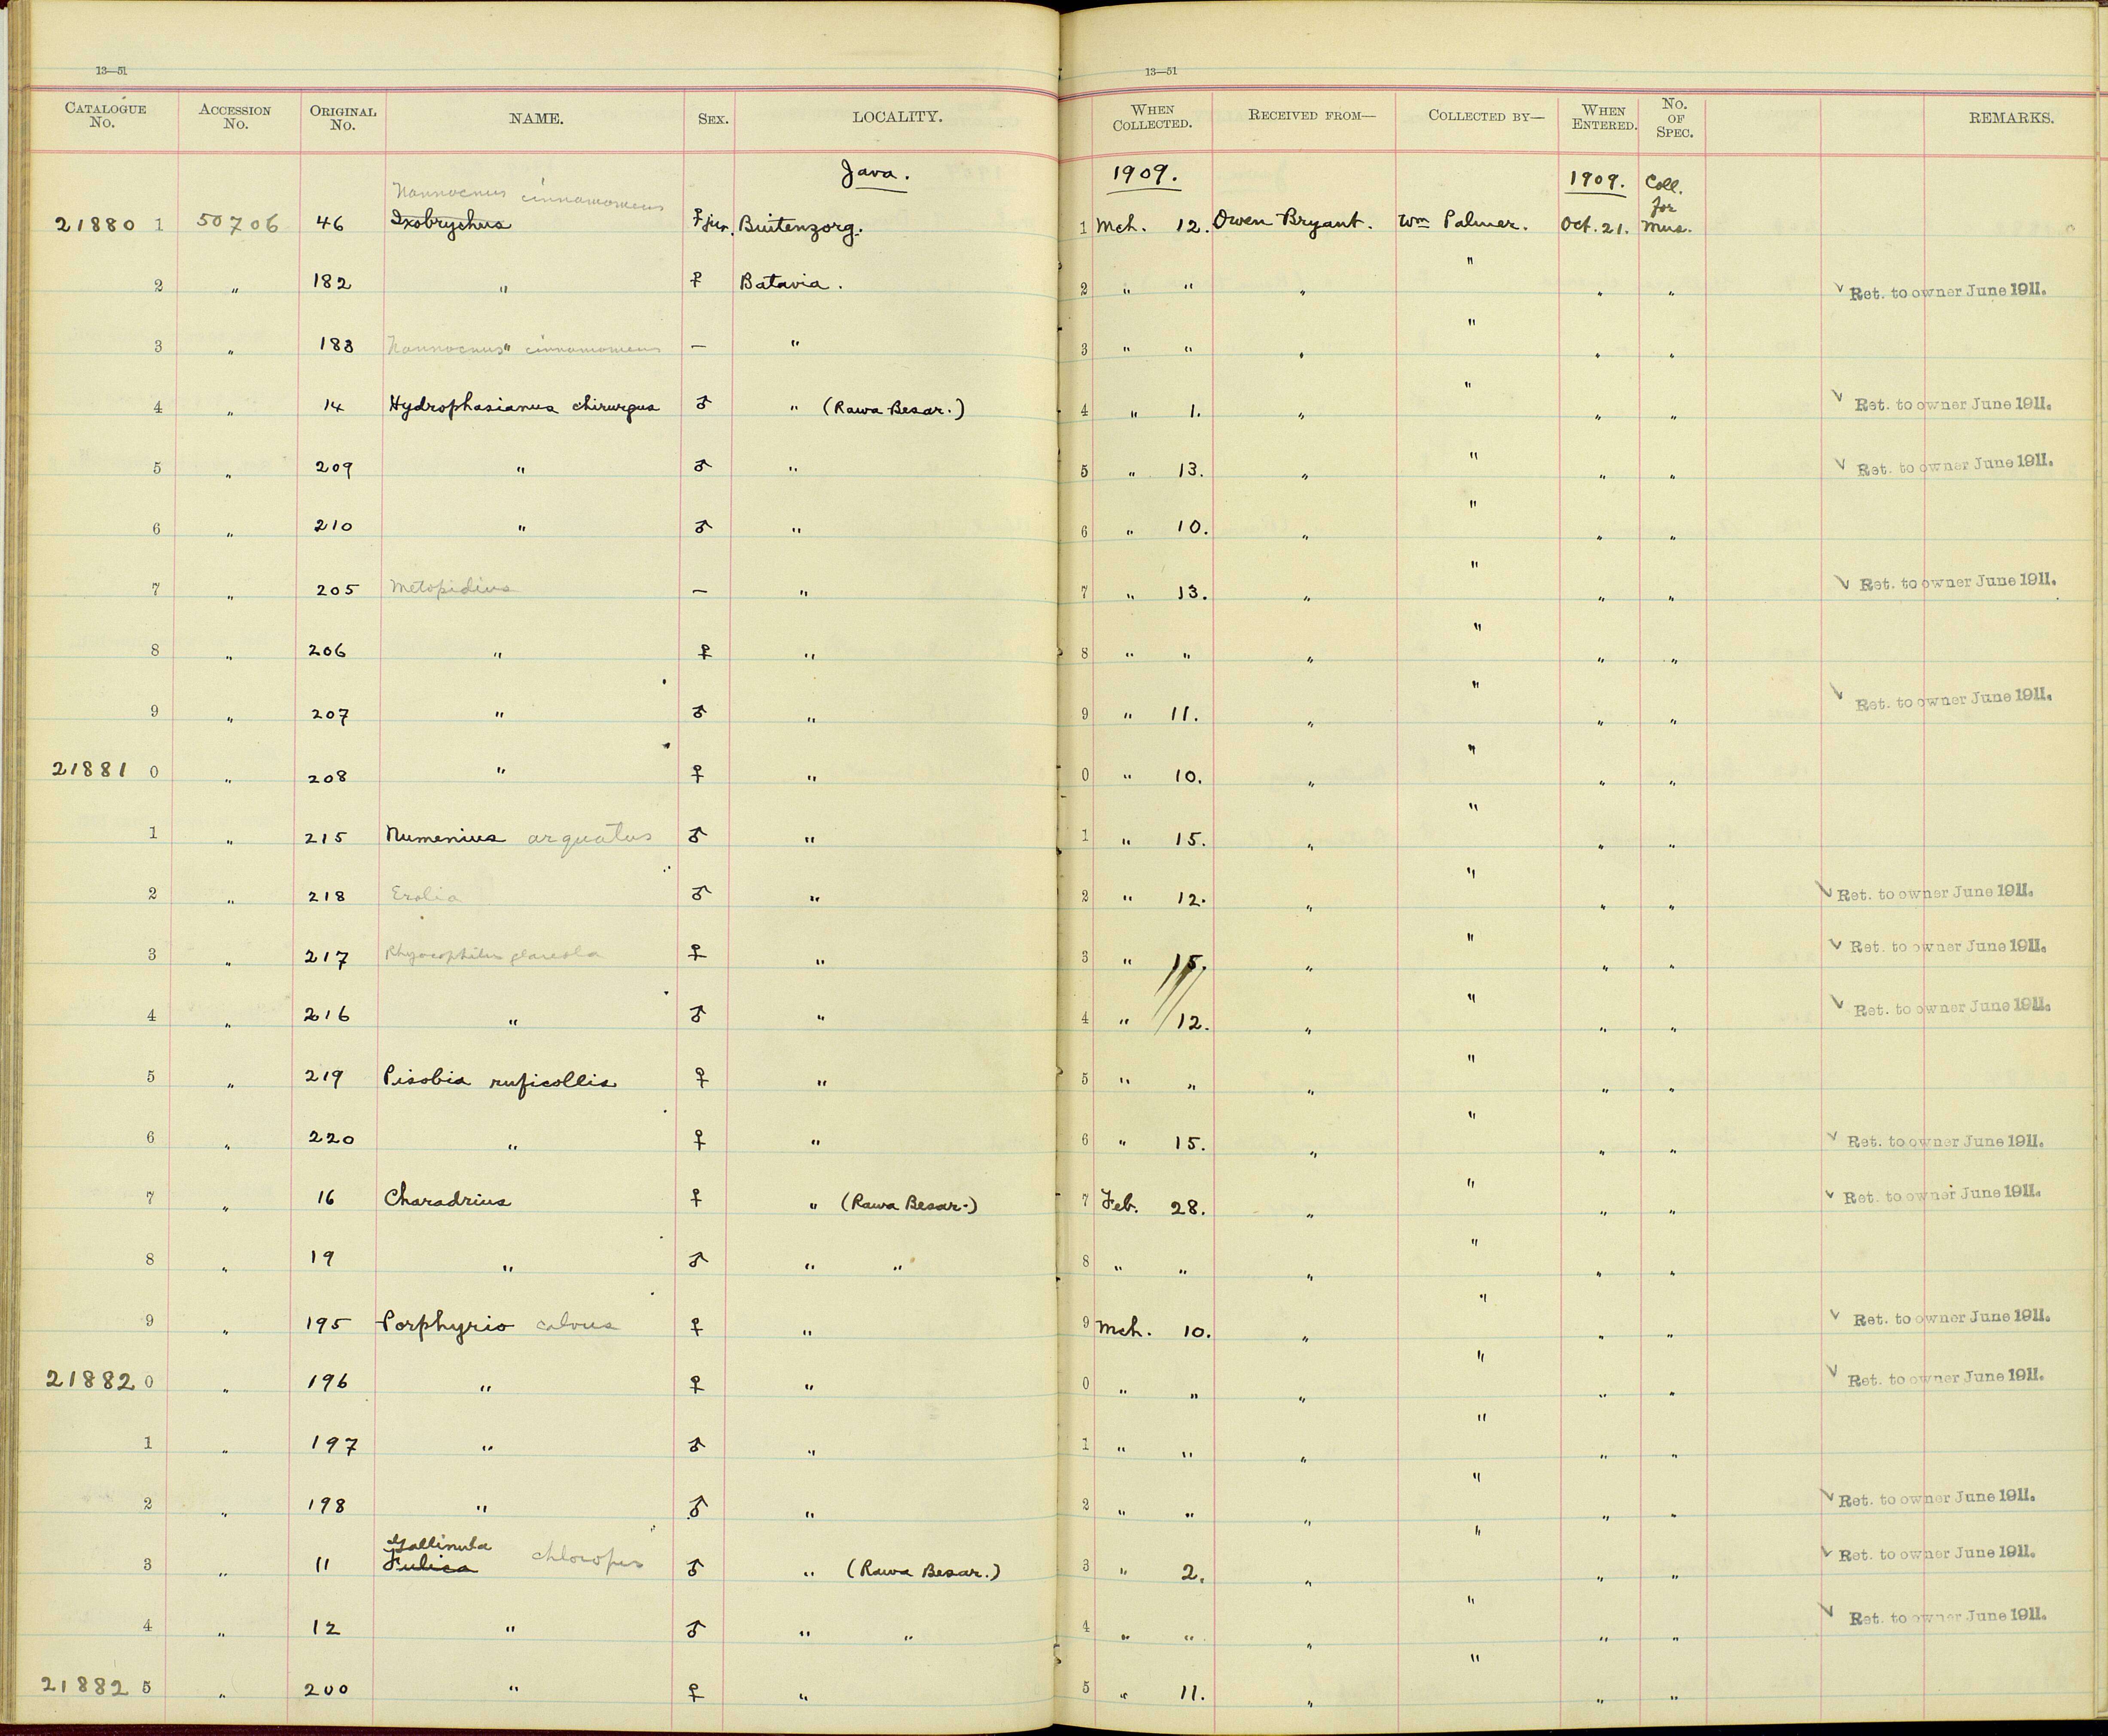 13—51
13—51
CATALOGUE No. ACCESSION No. ORIGINAL No. NAME. SEX. LOCALITY. WHEN COLLECTED. RECEIVED FROM— COLLECTED BY— WHEN ENTERED. No. OF SPEC. REMARKS.
Java. 1909. 1909. Coll. for Mus.
Nannocnus cinnamomeus
21880 1 50706 46 Ixobrychus ♀ jur. Buitenzorg. 1 Mch. 12. Owen Bryant. Wm Palmer. Oct. 21.
2 " 182 " ♀ Batavia. 2 " " " " " " ✓ Ret. to owner June 1911.
3 " 183 Nannocnus " cinnamomeus — " 3 " " " " " "
4 " 14 Hydrophasianus chirurgus ♂ " (Rawa Besar.) 4 " 1. " " " " ✓ Ret. to owner June 1911.
5 " 209 " ♂ " 5 " 13. " " " " ✓ Ret. to owner June 1911.
6 " 210 " ♂ " 6 " 10. " " " "
7 " 205 Metopidius — " 7 " 13. " " " " ✓ Ret. to owner June 1911.
8 " 206 " ♀ " 8 " " " " " "
9 " 207 " ♂ " 9 " 11. " " " " ✓ Ret. to owner June 1911.
21881 0 " 208 " ♀ " 0 " 10. " " " "
1 " 215 Numenius arquatus ♂ " 1 " 15. " " " "
2 " 218 Erolia ♂ " 2 " 12. " " " " ✓ Ret. to owner June 1911.
3 " 217 Rhyacophilus glareola ♀ " 3 " 15. " " " " ✓ Ret. to owner June 1911.
4 " 216 " ♂ " 4 " 12. " " " " ✓ Ret. to owner June 1911.
5 " 219 Pisobia ruficollis ♀ " 5 " " " " " "
6 " 220 " ♀ " 6 " 15. " " " " ✓ Ret. to owner June 1911.
7 " 16 Charadrius ♀ " (Rawa Besar.) 7 Feb. 28. " " " " ✓ Ret. to owner June 1911.
8 " 19 " ♂ " " 8 " " " " " "
9 " 195 Porphyrio calvus ♀ " 9 Mch. 10. " " " " ✓ Ret. to owner June 1911.
21882 0 " 196 " ♀ " 0 " " " " " " ✓ Ret. to owner June 1911.
1 " 197 " ♂ " 1 " " " " " "
2 " 198 " ♂ " 2 " " " " " " ✓ Ret. to owner June 1911.
Gallinula chloropus
3 " 11 Fulica ♂ " (Rawa Besar.) 3 " 2. " " " " ✓ Ret. to owner June 1911.
4 " 12 " ♂ " " 4 " " " " " " ✓ Ret. to owner June 1911.
21882 5 " 200 " ♀ " 5 " 11. " " " "